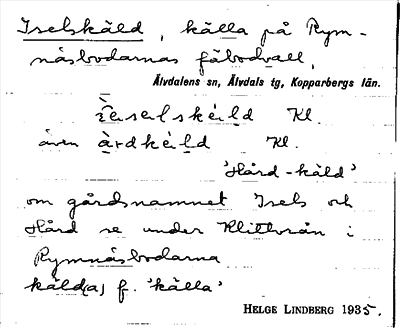 Iselskäld, källa på Rym-
näsbodarnas fäbodvall,
Älvdalens sn, Älvdals tg, Kopparbergs län.
Kl.
även àrdkèld Kl.
'Hård-käld'
om gårdsnamnet Isels och
Hård se under Klitthrån i
Rymnäsbodarna
käld(a) f. 'källa'
HELGE LINDBERG 1935.